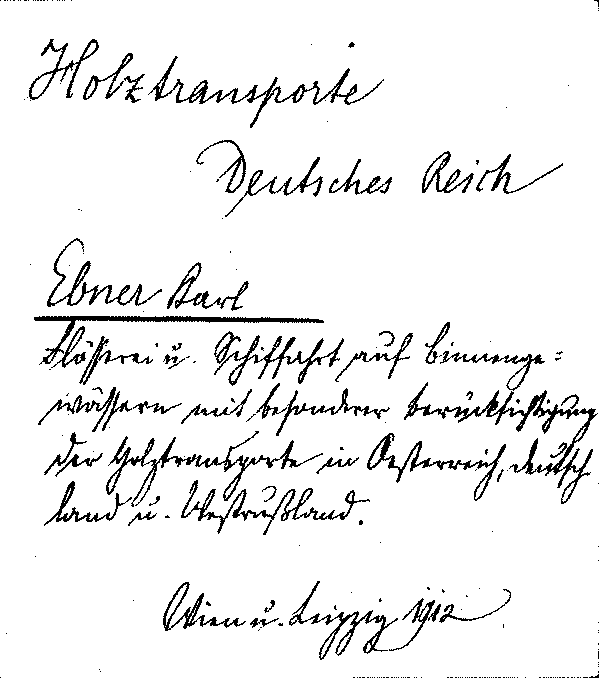 Holztransporte
Deutsches Reich
Ebner Karl
Flösserei u. Schiffahrt auf Binnenge=
wässern mit besonderer Berücksichtigung
der Holztransporte in Oesterreich, Deutsch
land u. Westrußland.
Wien u. Leipzig 1912